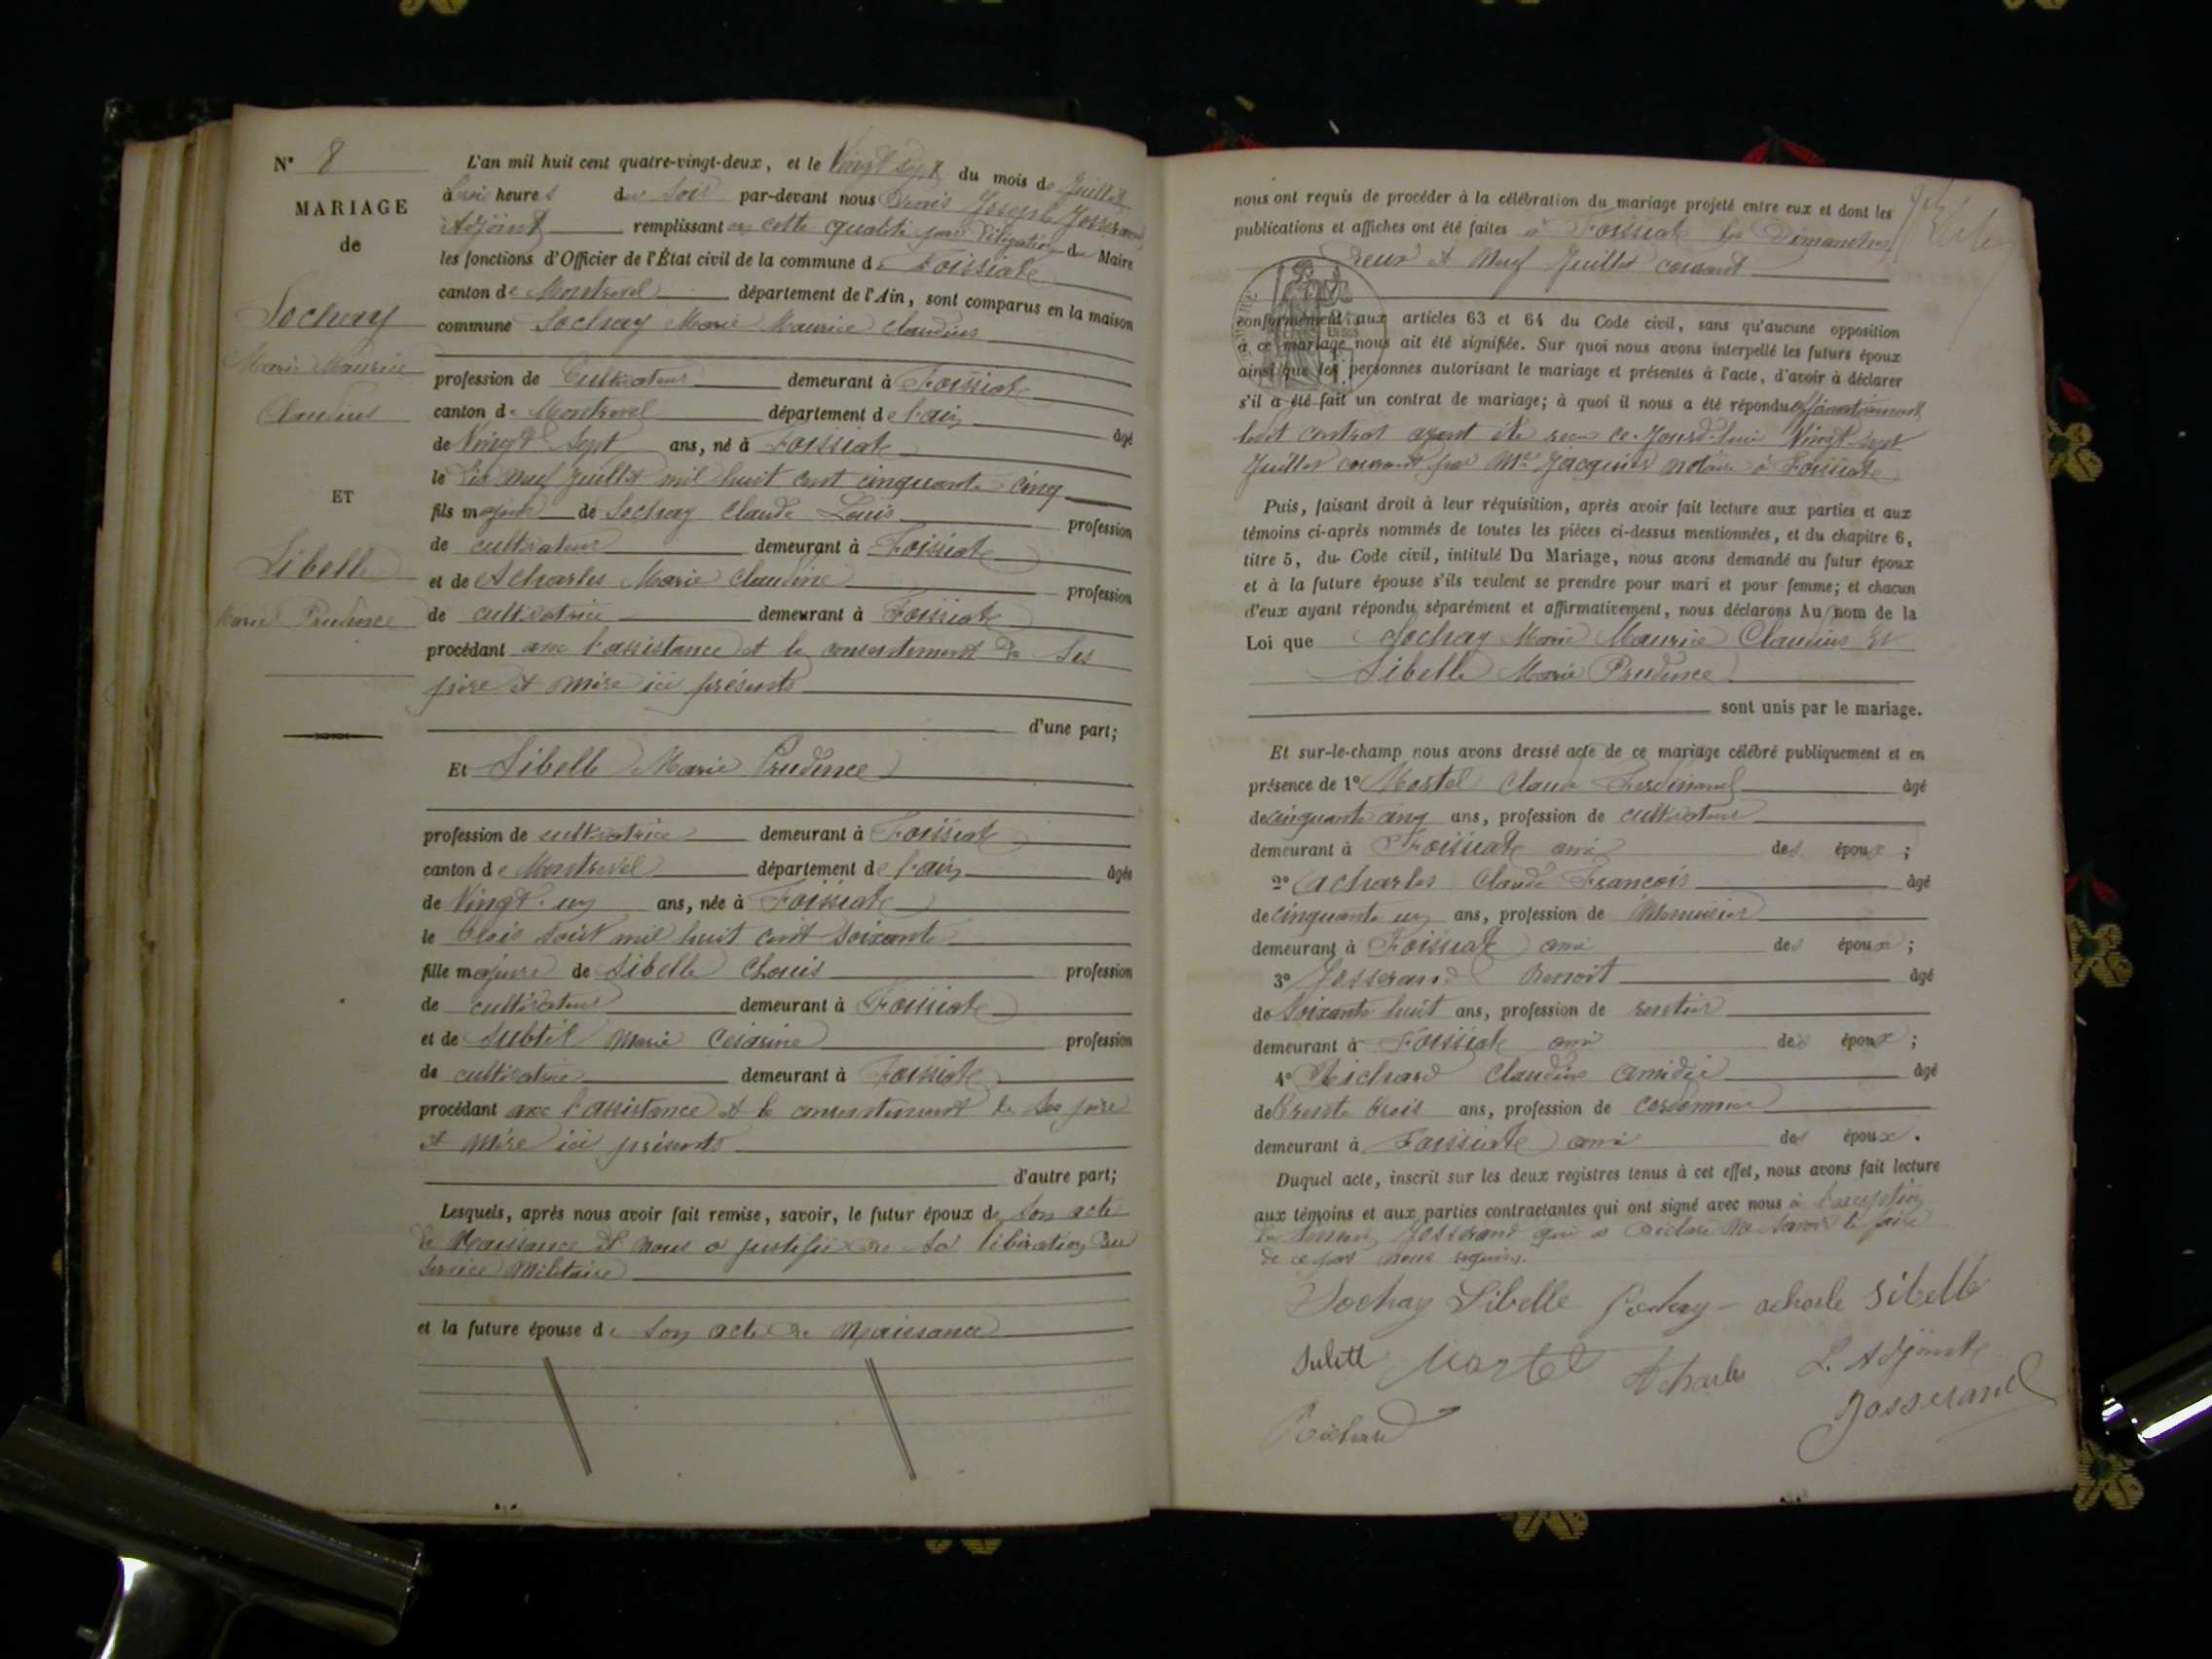 N° 8
MARIAGE
de
Sochay
Marie Maurice
Claudius
ET
Sibelle
Marie Prudence
L'an mil huit cent quatre-vingt-deux, et le Vingt sept du mois de Juillet
à heures du Soir par-devant nous Denis Joseph Josserand
Adjoint remplissant en cette qualité par délégation du Maire
les fonctions d'Officier de l'État civil de la commune de Foissiat
canton de Montrevel département de l'Ain, sont comparus en la maison
commune Sochay Marie Maurice Claudius
profession de Cultivateur demeurant à Foissiat
canton de Montrevel département de l'ain âgé
de Vingt Sept ans, né à Foissiat
le Dix neuf Juillet mil huit cent cinquante cinq
fils majeur de Sochay Claude Louis profession
de cultivateur demeurant à Foissiat
et de Acharles Marie Claudine profession
de cultivatrice demeurant à Foissiat
procédant avec l'assistance et le consentement de Ses
père et mère ici présents
d'une part;
Et Sibelle Marie Prudence
profession de cultivatrice demeurant à Foissiat
canton de Montrevel département de l'ain âgée
de Vingt un ans, née à Foissiat
le trois août mil huit cent soixante
fille majeure de Sibelle Louis profession
de cultivateur demeurant à Foissiat
et de Subtil Marie Césarine profession
de cultivatrice demeurant à Foissiat
procédant avec l'assistance et le consentement de Ses père
et Mère ici présents
d'autre part;
Lesquels, après nous avoir fait remise, savoir, le futur époux de Son acte
de Naissance et nous a justifié de sa libération du
Service Militaire
et la future épouse de Son acte de Naissance
nous ont requis de procéder à la célébration du mariage projeté entre eux et dont les
publications et affiches ont été faites à Foissiat les Dimanches
deux et Neuf Juillet courant
conformément aux articles 63 et 64 du Code civil, sans qu'aucune opposition
à ce mariage nous ait été signifiée. Sur quoi nous avons interpellé les futurs époux
ainsi que les personnes autorisant le mariage et présentes à l'acte, d'avoir à déclarer
s'il a été fait un contrat de mariage; à quoi il nous a été répondu affirmativement
ledit contrat ayant été reçu ce-jourd'hui Vingt sept
Juillet courant par Me Jacquier notaire à Foissiat
Puis, faisant droit à leur réquisition, après avoir fait lecture aux parties et aux
témoins ci-après nommés de toutes les pièces ci-dessus mentionnées, et du chapitre 6,
titre 5, du Code civil, intitulé Du Mariage, nous avons demandé au futur époux
et à la future épouse s'ils veulent se prendre pour mari et pour femme; et chacun
d'eux ayant répondu séparément et affirmativement, nous déclarons Au nom de la
Loi que Sochay Marie Maurice Claudius Et
Sibelle Marie Prudence
sont unis par le mariage.
Et sur-le-champ nous avons dressé acte de ce mariage célébré publiquement et en
présence de 1° Martel Claude Ferdinand âgé
de cinquante cinq ans, profession de cultivateur
demeurant à Foissiat ami des époux ;
2° Acharles Claude François âgé
de cinquante un ans, profession de Menuisier
demeurant à Foissiat ami des époux ;
3° Josserand Benoît âgé
de Soixante huit ans, profession de rentier
demeurant à Foissiat ami des époux ;
4° Richard Claudius Amédée âgé
de trente trois ans, profession de cordonnier
demeurant à Foissiat ami des époux.
Duquel acte, inscrit sur les deux registres tenus à cet effet, nous avons fait lecture
aux témoins et aux parties contractantes qui ont signé avec nous à l'exception
du témoin Josserand qui a déclaré ne savoir le faire
de ce par nous requis.
Sochay Sibelle Sochay acharle Sibelle
Martel Acharles L. Adjoint
Josserand
Richard